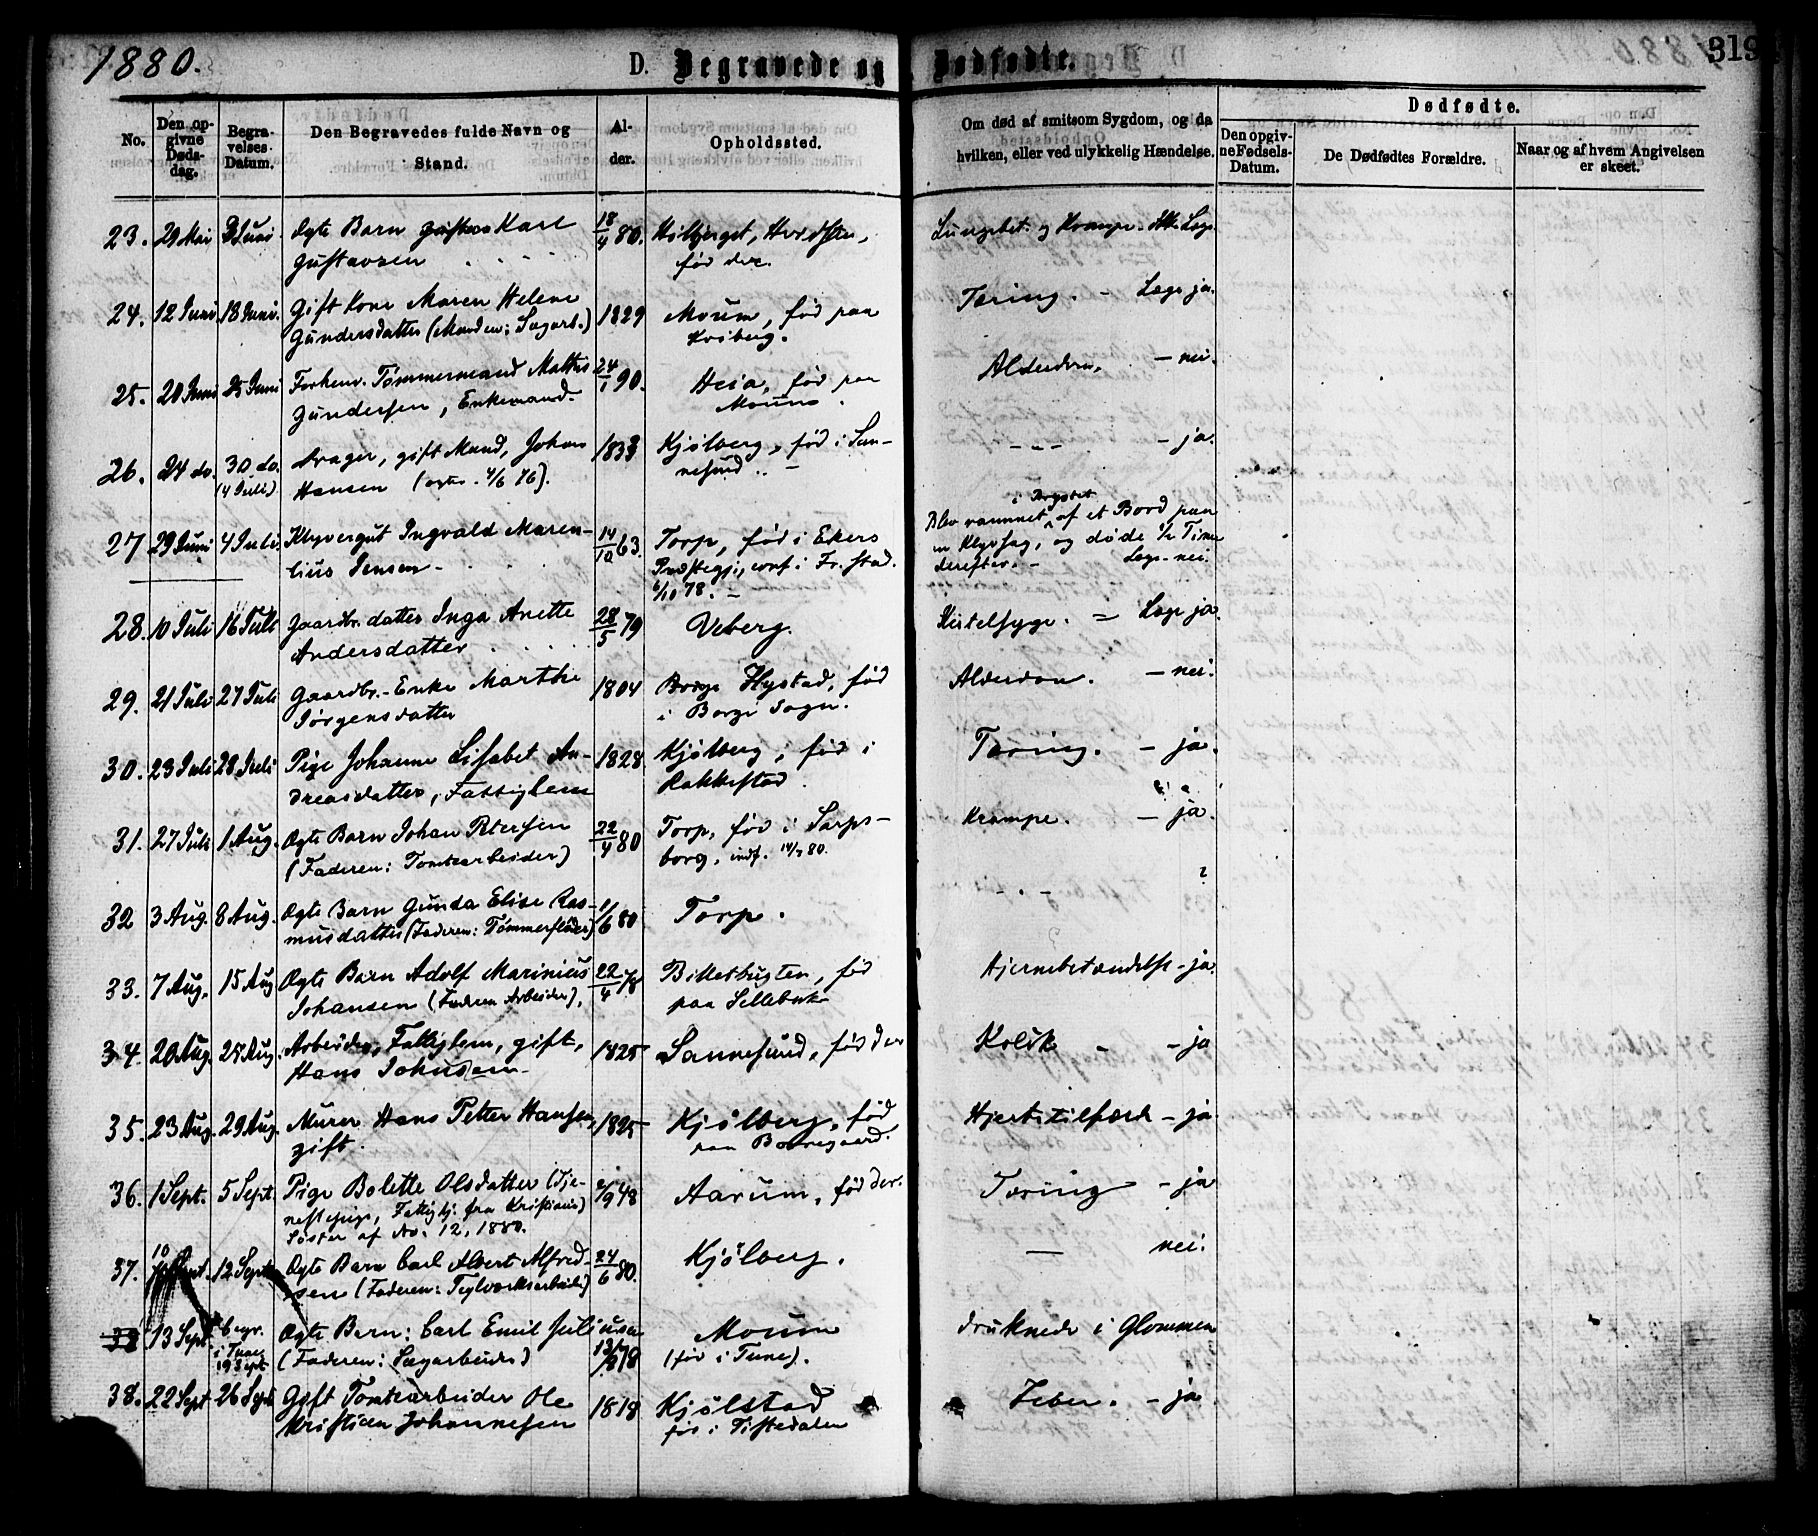 1880.
D. Begravede og Dødfødte.
319
No.
Den opgivne Dødsdag.
Begravelses Datum.
Den Begravedes fulde Navn og Stand.
Alder.
Opholdssted.
Om død af smitsom Sygdom, og da hvilken, eller ved ulykkelig Hændelse.
Dødfødte.
Den opgivne Fødsels-Datum.
De Dødfødtes Forældre.
Naar og af hvem Angivelsen er skeet.
23. 29 Mai Juni Ægte Barn Karl 18/4 80. Hvidsten,
Gustavsen født der.
24. 12 Juni 18 Juni. Gift Kone Maren Helene 1829 Moum, fød paa Tæring. - Læge ja.
Gundersdatter (Manden: Sagarb.)
25. 20 Juni 25 Juni Forhenv. Tømmermand Mathis 24/1 90. Heia, fød paa Alderdom, - nei.
Gundersen, Enkemand. Moum.
26. 24 do. 30 do. gift Mand, Johan 1833 Kjølberg, fød i San- - - - - ja.
(4 Juli) Hansen (ægtev. 4/6 76). nesund. -
i Brystet
27 29 Juni 4 Juli. Kløvergut Ingvald Maren- 14/10 63. Torp, fød i Ekers Blev rammet af et Bord paa
lius Jensen. Præstegj., conf. i Fr.stad. en Kløvsag, og døde 1/2 Time
1/10 78. - derefter. - Læge - nei.
28. 10 Juli 16 Juli Gaardbr.datter Inga Anette 28/5 79 Veberg. Kirtelsyge. - Læge ja.
Andersdatter
29. 21 Juli 27 Juli Gaardbr.-Enke Marthe 1804 Borge Hystad, fød Alderdom. - nei.
Jørgensdatter i Borge Sogn.
30. 23 Juli 28 Juli Pige Johanne Lisabet An- 1828. Kjølberg, fød i Tæring. - ja.
dreasdatter, Fattiglem Rakkestad.
31. 27 Juli 1 Aug. Ægte Barn Johan Petersen 22/4 80 Torp, fød i Sarps- Krampe. - ja.
(Faderen: Tomtearbeider) borg, indf. 14/7 80.
32 3 Aug. 8 Aug. Ægte Barn Gunda Elise Ras- 1/6 80 Torp. - . - ?
musdatter (Faderen: Tømmerfløder)
33. 7 Aug. 15 Aug Ægte Barn Adolf Marinius 22/4 78 Billetbugten, fød Hjernebetændelse - ja
Johansen (Faderen Arbeider), paa Lillebæk
34. 20 Aug. 25 Aug. Arbeider, Fattiglem, gift, 1825 Sannesund, fød der Kolik - - ja
Hans Johnsen
35. 23 Aug. 29 Aug. Murer Hans Petter Hansen, 1825 Kjølberg, fød Hjertetilfæld - ja.
gift. paa Borregaard.
36. 1 Sept. 5 Sept. Pige Bolette Olsdatter (Tje- 2/9 48 Aarum, fød der. Tæring - ja
nestepige, Fattighj. fra Kristiania)
Søster af No. 12, 1880.
10
37. Sept. 12 Sept. Ægte Barn Carl Albert Alfred- 24/6 80. Kjølberg. — nei.
sen (Faderen: Teglværksarbeid.)
38 13 Sept. begr. Ægte Barn: Carl Emil Juliusen Moum druknede i Glommen
i Tune 19 Sept. (Faderen: Sagarbeider) 78 (fød i Tune).
38. 22 Sept 26 Sept Gift Tomtearbeider Ole 1818 Kjølstad Feber. - ja.
Kristian Johannesen fød i Tistedalen